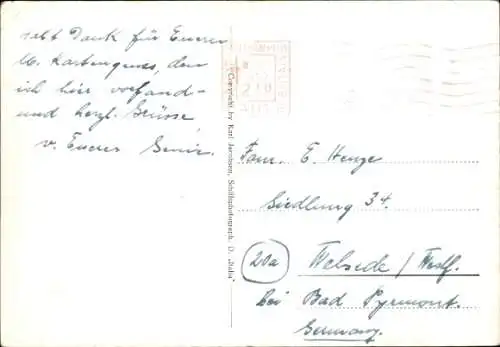 habt Dank für Eueren
lb. Kartengruss, den
ich hier vorfand –
und herzl. Grüsse,
v. Euerer
Copyright by Karl Jacobsen, Schiffsphotograph. D. „Italia“
Fam. E. Henze
Siedlung 34.
20a
Welsede / Westf.
bei Bad Pyrmont.
Germany.